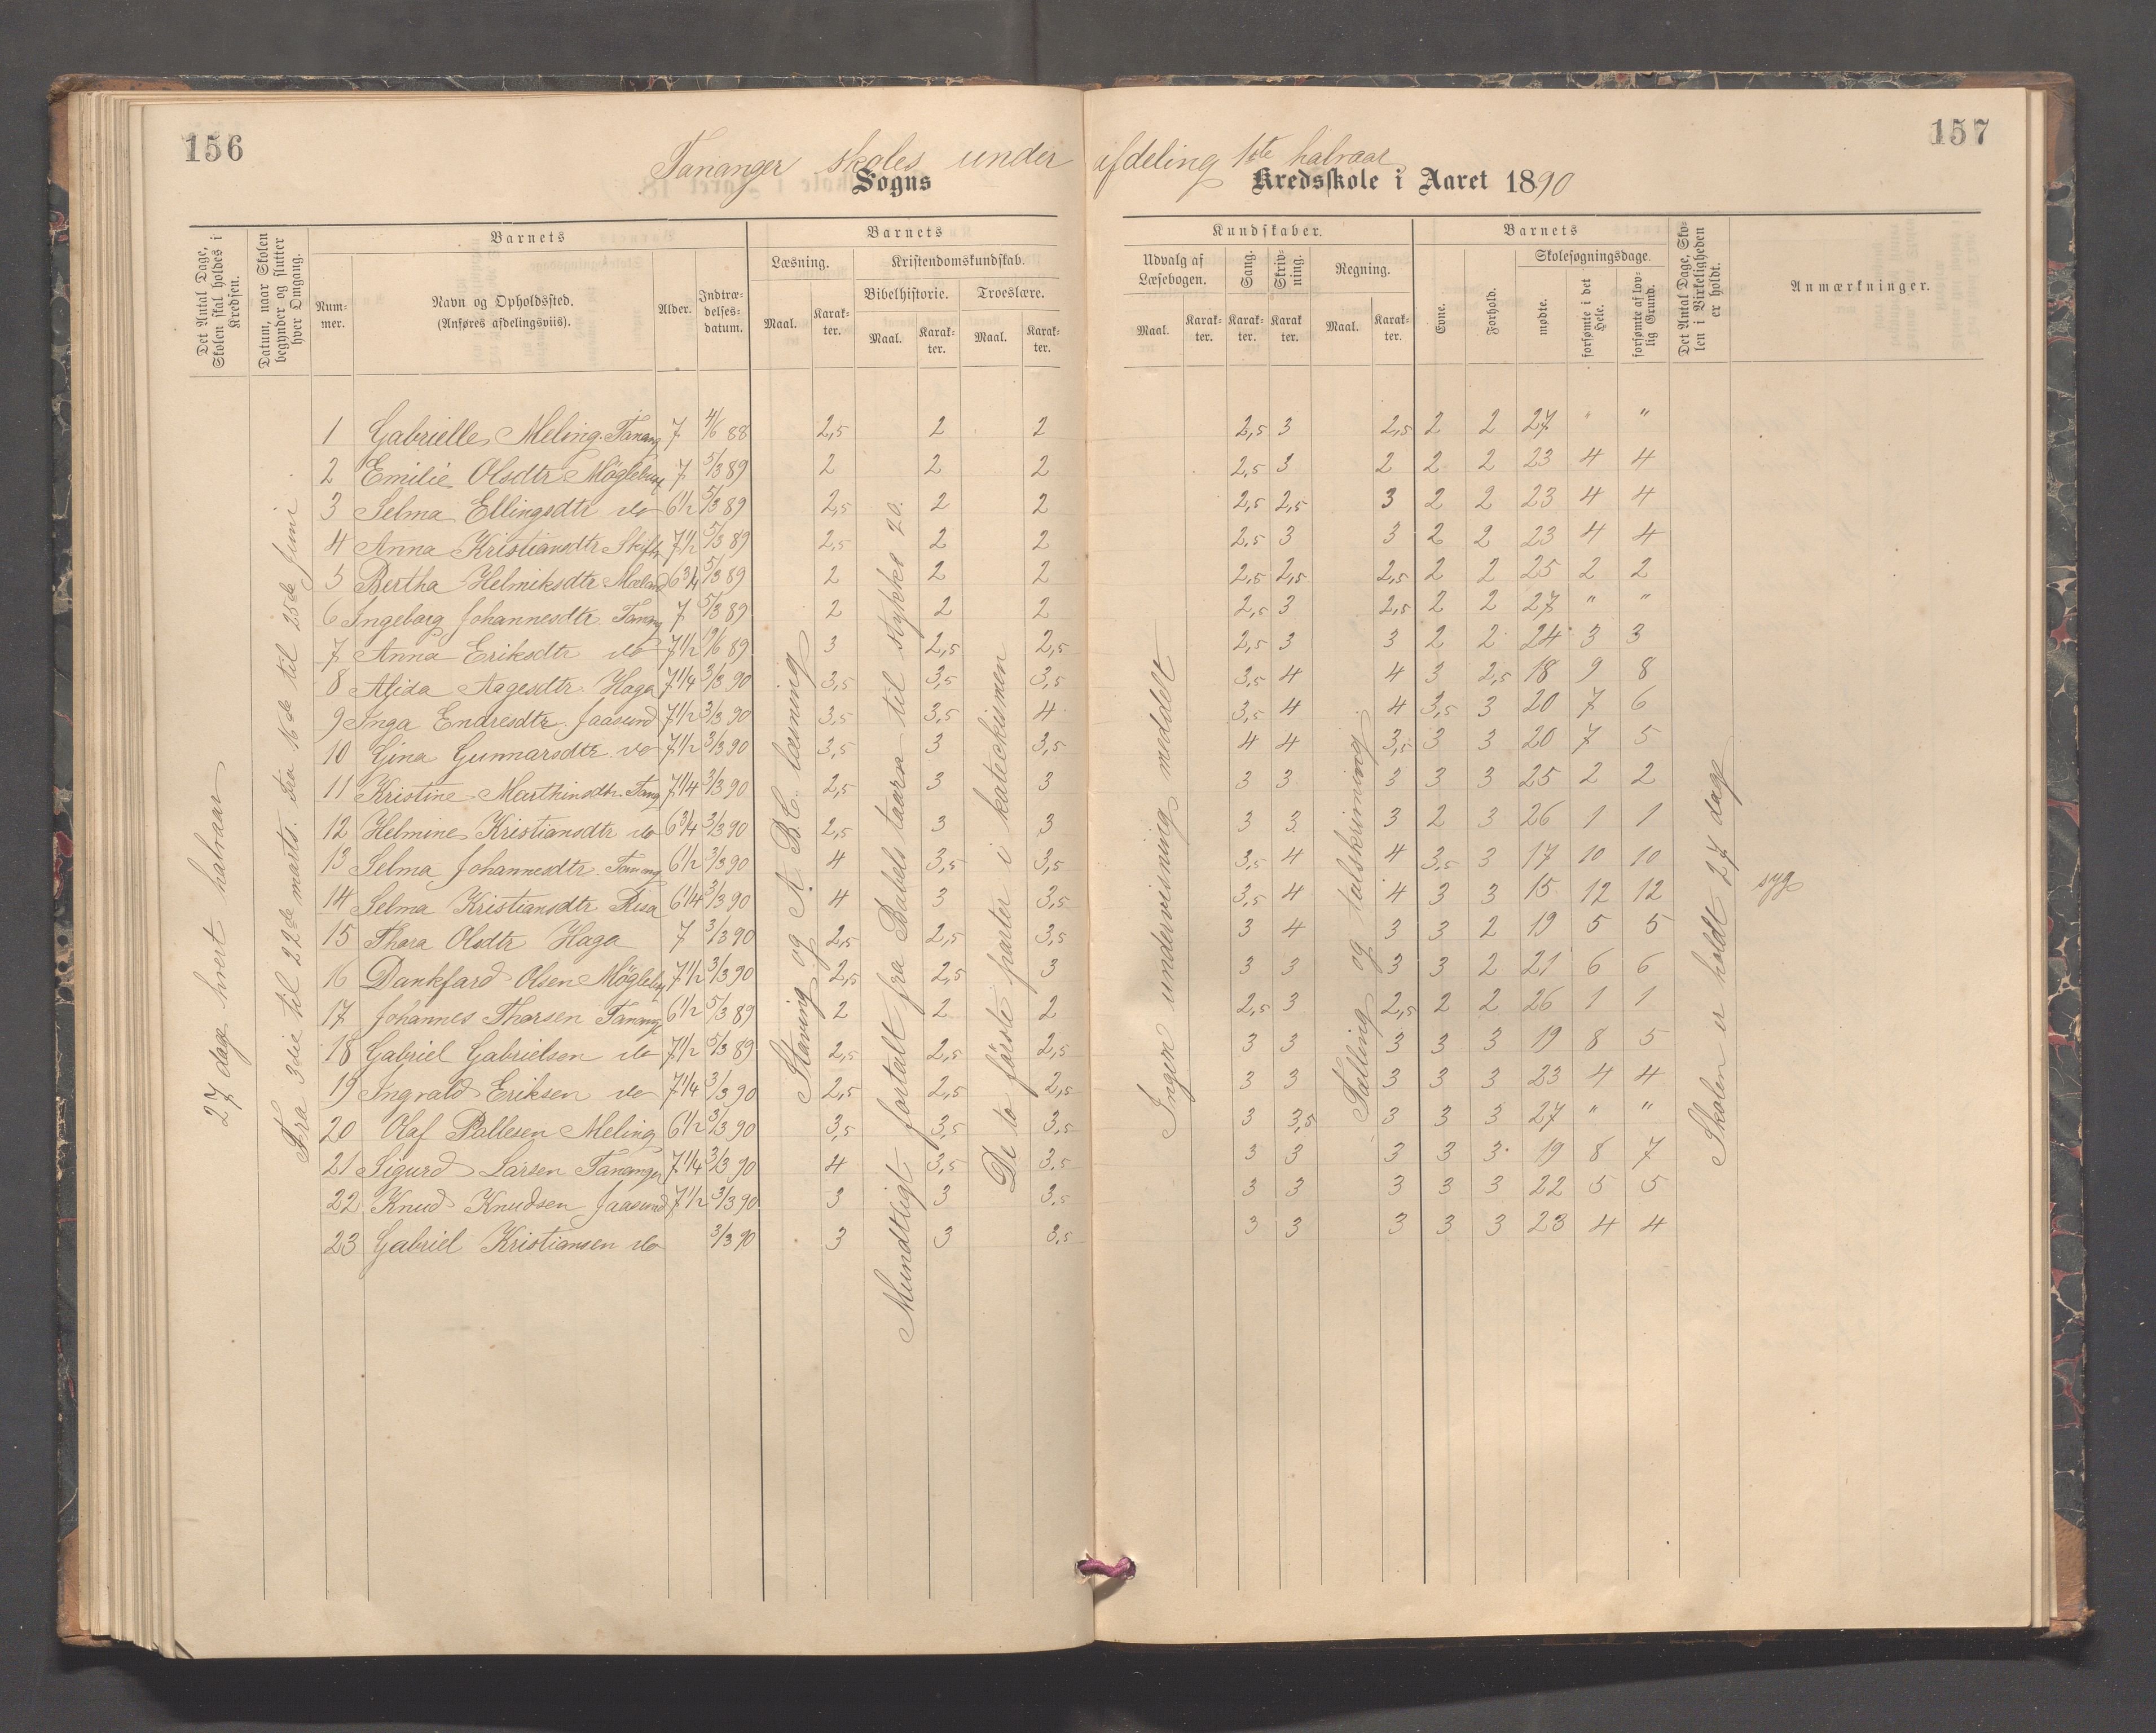 156
157
Tananger skoles under afdeling 1ste halvaar
Sogns Kredsskole i Aaret 1890
Det Antal Dage, Skolen skal holdes i Kredsen.
Datum, naar Skolen begynder og slutter hver Omgang.
Barnets
Nummer.
Navn og Opholdssted.
(Anføres afdelingsviis).
Alder.
Indtrædelsesdatum.
Barnets Kundskaber.
Læsning.
Maal.
Karakter.
Kristendomskundskab.
Bibelhistorie.
Maal.
Karakter.
Troeslære.
Maal.
Karakter.
Udvalg af Læsebogen.
Maal.
Karakter.
Sang.
Karakter.
Skrivning.
Karakter.
Regning.
Maal.
Karakter.
Barnets
Evne.
Forhold.
Skolesøgningsdage.
mødte.
forsømte i det Hele.
forsømte af lovlig Grund.
Det Antal Dage, Skolen i Virkeligheden er holdt.
Anmærkninger.
27 dage hvert halvaar
Fra 3die til 22de marts. Fra 16de til 25de Juni.
Staving og A. B. C. læsning
Mundtligt fortalt fra Babels taarn til stykket 20.
De to første parter i katechismen
Ingen undervisning meddelt
Tælling og talskrivning
Skolen er holdt 27 dage
1 Gabrielle Meling. Tanang 7 4/6 88 2,5 2 2 2,5 3 2,5 2 2 27 " "
2 Emilie Olsdtr Mögleby 7 5/3 89 2 2 2 2,5 3 2 2 2 23 4 4
3 Selma Ellingsdtr do 6 1/2 5/3 89 2,5 2 2 2,5 2,5 3 2 2 23 4 4
4 Anna Kristiansdtr Skift 7 1/2 5/3 89 2,5 2 2 2,5 3 3 2 2 23 4 4
5 Bertha Helmiksdtr Mæland 6 3/4 5/3 89 2 2 2 2,5 2,5 2,5 2 2 25 2 2
6 Ingeborg Johannesdtr. Tanang 7 5/3 89 2 2 2 2,5 3 2,5 2 2 27 " "
7 Anna Eriksdtr do 7 1/2 19/6 89 3 2,5 2,5 2,5 3 3 2 2 24 3 3
8 Alida Aagesdtr. Haga 7 1/4 3/3 90 3,5 3,5 3,5 3,5 4 4 3 2,5 18 9 8
9 Inga Endresdtr. Jaasund 7 1/2 3/3 90 3,5 3,5 4 3,5 4 4 3,5 3 20 7 6
10 Gina Gunnarsdtr. do 7 1/2 3/3 90 3,5 3 3,5 4 4 3,5 3 3 20 7 5
11 Kristine Marthinsdtr. Tang 7 1/4 3/3 90 2,5 3 3 3 3 3 3 3 25 2 2
12 Helmine Kristiansdtr do 6 3/4 3/3 90 2,5 3 3 3 3 3 2 3 26 1 1
13 Selma Johannesdtr. Tanang 6 1/2 3/3 90 4 3,5 3,5 3,5 4 4 3,5 3 17 10 10
14 Selma Kristiansdtr Risa 6 1/4 3/3 90 4 3 3,5 3,5 4 4 3 3 15 12 12 syg
15 Thora Olsdtr Haga 7 3/3 90 2,5 2,5 3,5 3 4 3 3 2 19 5 5
16 Dankfard Olsen Mögleby 7 1/2 3/3 90 2,5 2,5 3 3 3 3 3 2 21 6 6
17 Johannes Thorsen Tanang 6 1/2 5/3 89 2 2 2 2,5 3 2,5 2 2 26 1 1
18 Gabriel Gabrielsen do 7 1/2 5/3 89 2,5 2,5 2,5 3 3 3 3 3 19 8 5
19 Ingvald Eriksen do 7 1/4 3/3 90 2,5 2,5 2,5 3 3 3 3 3 23 4 4
20 Olaf Pallesen Meling 6 1/2 3/3 90 3,5 3,5 3,5 3 3,5 3 3 3 27 " "
21 Sigurd Larsen Tananger 7 1/4 3/3 90 4 3,5 3,5 3 3 3 3 3 19 8 7
22 Knud Knudsen Jaasund 7 1/2 3/3 90 3 3 3,5 3 3 3 3 3 22 5 5
23 Gabriel Kristiansen do 3/3 90 3 3 3,5 3 3 3 3 3 23 4 4